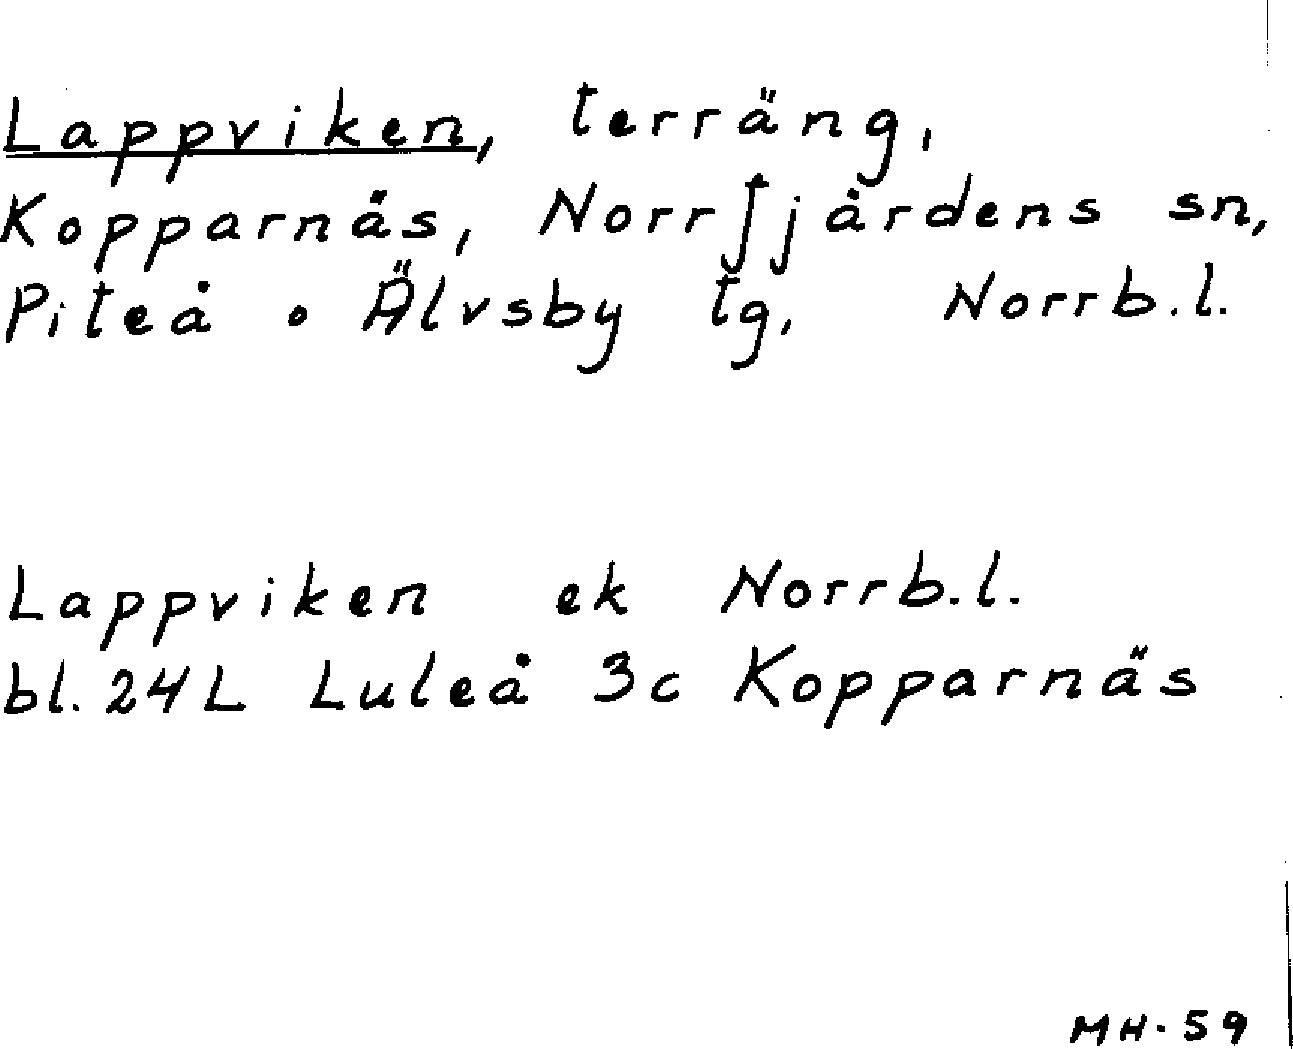 Lappviken, terräng,
Kopparnäs, Norrfjärdens sn,
Piteå o Älvsby tg, Norrb.l.
Lappviken ek Norrb.l.
bl. 24L Luleå 3c Kopparnäs
MH-59